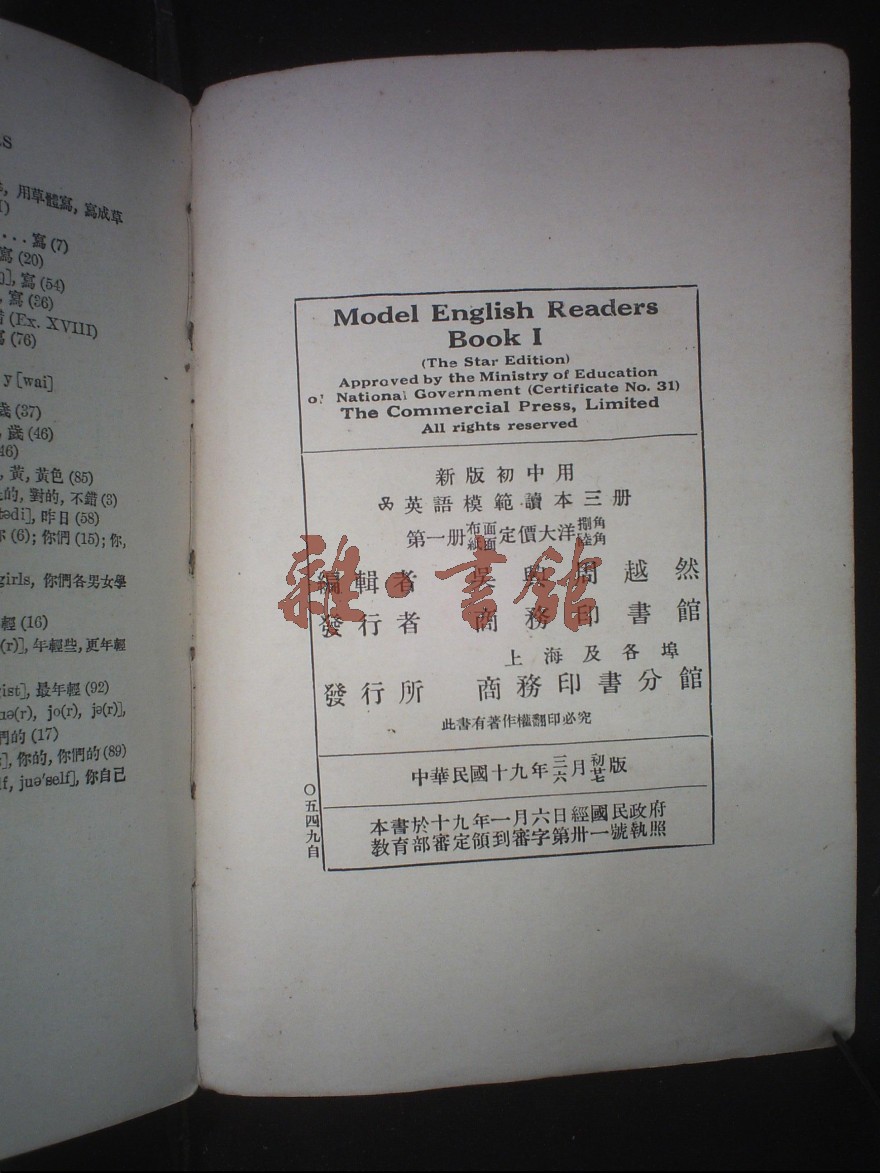 用草體寫, 寫成草
寫 (7)
寫 (20)
寫 (54)
寫 (36)
(Ex. XVIII)
(76)
y [wai]
歲 (37)
歲 (46)
46)
黃, 黃色 (85)
的, 對的, 不錯 (3)
tədi], 昨日 (58)
(6); 你們 (15); 你,
girls, 你們各男女學
輕 (16)
(r)], 年輕些, 更年輕
gist], 最年輕 (92)
uə(r), jo(r), jə(r)],
們的 (17)
], 你的, 你們的 (89)
lf, juə'self], 你自己
Model English Readers
Book I
(The Star Edition)
Approved by the Ministry of Education
of National Government (Certificate No. 31)
The Commercial Press, Limited
All rights reserved
新版初中用
英語模範讀本三册
第一册布面紙面定價大洋捌角陸角
編輯者 吳興周越然
發行者 商務印書館
上海及各埠
發行所 商務印書分館
此書有著作權翻印必究
中華民國十九年三六月初廿版
本書於十九年一月六日經國民政府
教育部審定領到審字第卅一號執照
〇五四九自
雜·書館